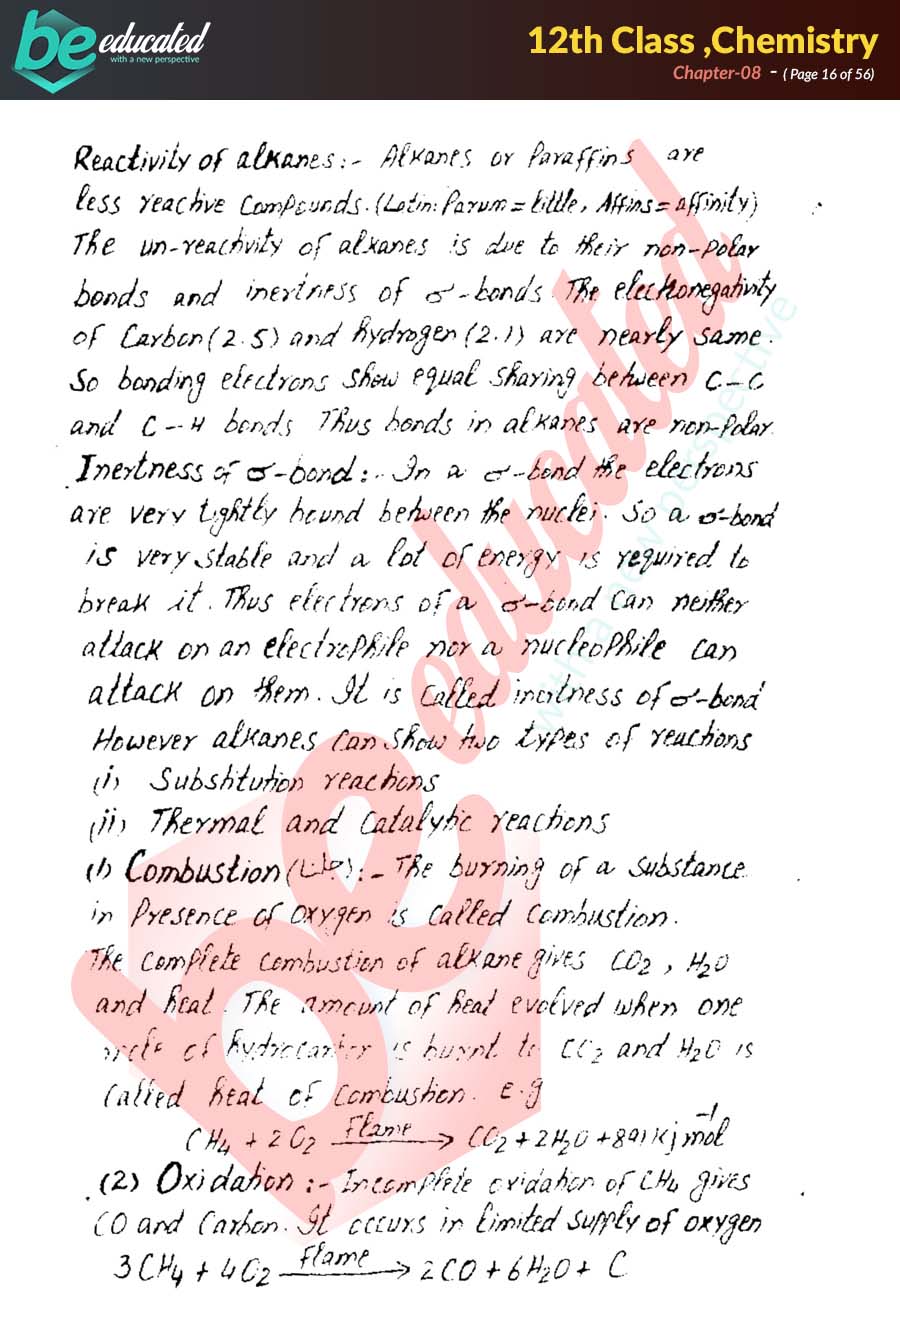 be educated
with a new perspective
12th Class ,Chemistry
Chapter-08 - ( Page 16 of 56)
Reactivity of alkanes:- Alkanes or Paraffins are
less reactive compounds. (Latin: Parum = little, Affins = affinity)
The un-reactivity of alkanes is due to their non-polar
bonds and inertness of σ-bonds. The electronegativity
of Carbon (2.5) and hydrogen (2.1) are nearly same.
So bonding electrons show equal sharing between C-C
and C-H bonds. Thus bonds in alkanes are non-polar.
Inertness of σ-bond:- In a σ-bond the electrons
are very tightly bound between the nuclei. So a σ-bond
is very stable and a lot of energy is required to
break it. Thus electrons of a σ-bond can neither
attack on an electrophile nor a nucleophile can
attack on them. It is called inertness of σ-bond
However alkanes can show two types of reactions
(i) Substitution reactions
(ii) Thermal and catalytic reactions
(1) Combustion (جلنا):- The burning of a substance
in presence of oxygen is called combustion.
The complete combustion of alkane gives CO2, H2O
and heat. The amount of heat evolved when one
mole of hydrocarbon is burnt to CO2 and H2O is
called heat of combustion. e.g
CH4 + 2O2 Flame → CO2 + 2H2O + 891 kj mol-1
(2) Oxidation:- Incomplete oxidation of CH4 gives
CO and Carbon. It occurs in limited supply of oxygen
3CH4 + 4O2 Flame → 2CO + 6H2O + C
be educated
with a new perspective